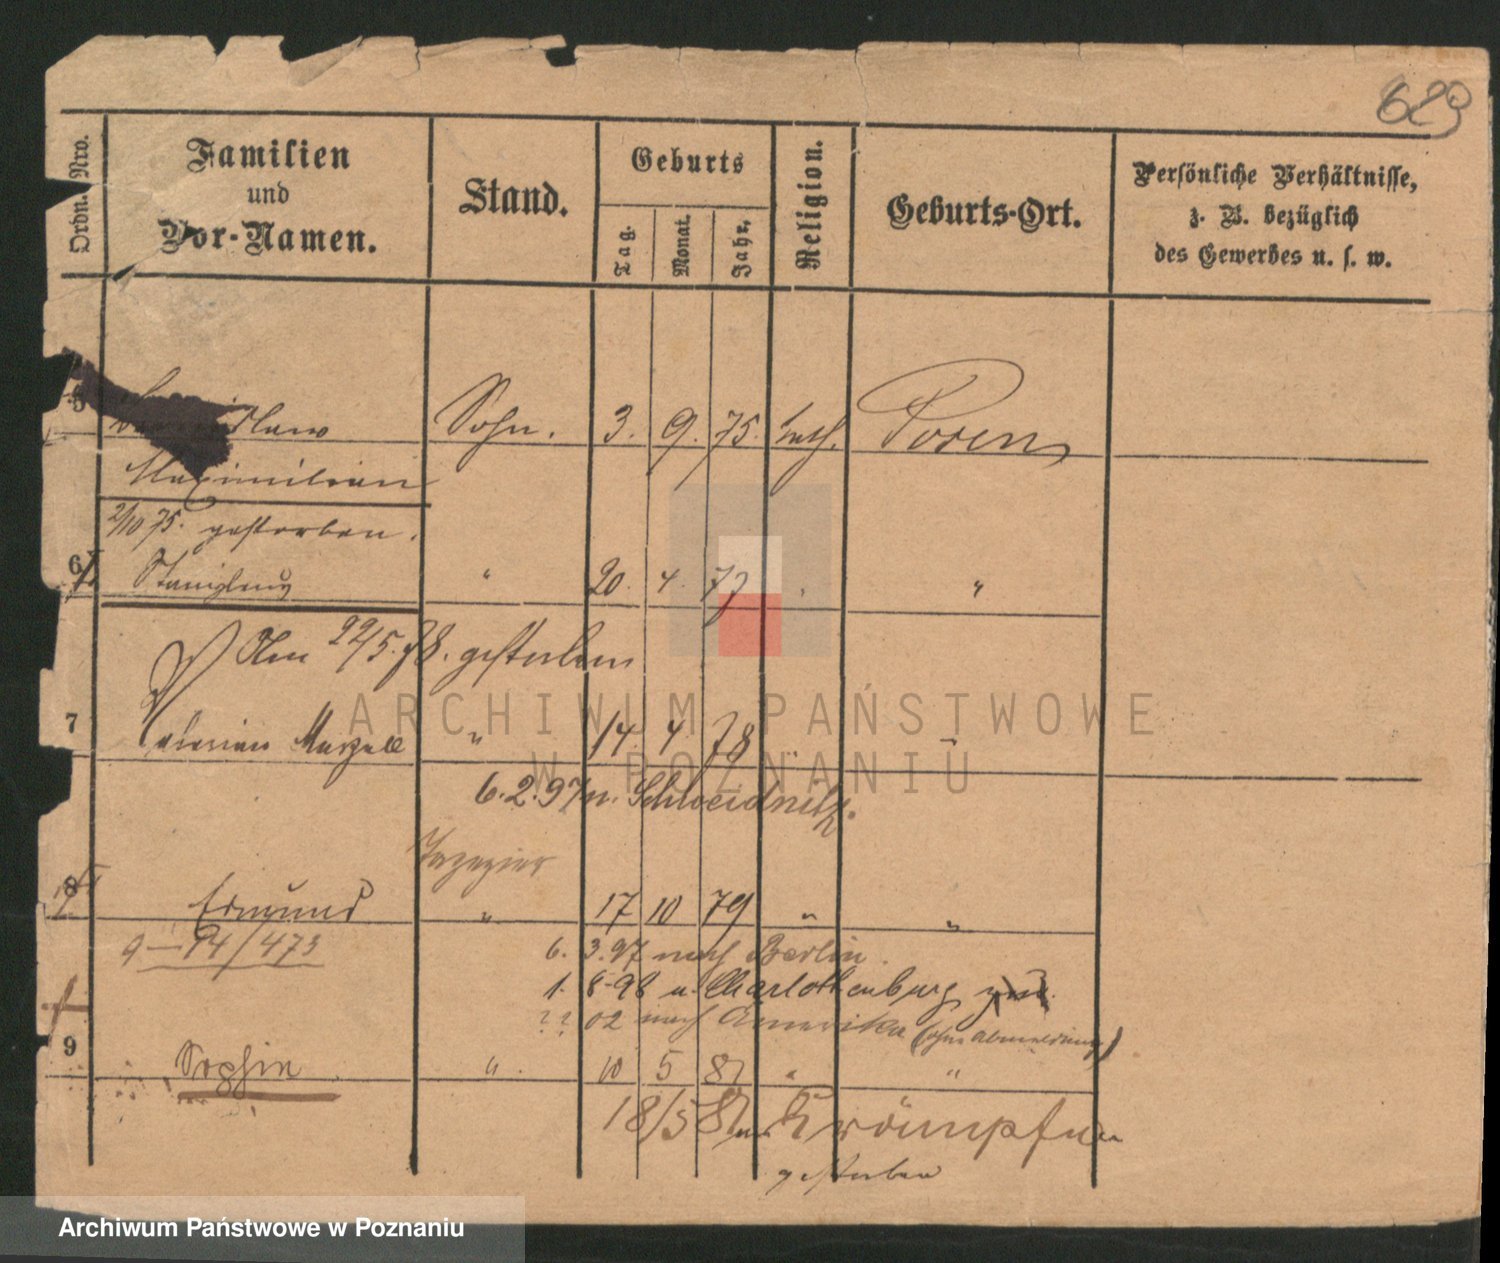 629
Ordn. Nro.
Familien
und
Vor-Namen.
Stand.
Geburts
Tag.
Monat.
Jahr,
Religion.
Geburts-Ort.
Persönliche Verhältnisse,
z. B. bezüglich
des Gewerbes u. s. w.
5 Sohn. 3. 9. 75. kath. Posen
Maximilian
2/10 75. gestorben.
6 Stanislaus " 20. 4. 77 " "
Am 22/5. 78. gestorben
7 " 14. 4 78 " "
6.2.97 n. Schweidnitz.
8 Edmund " 17 10 79 " "
9-14/473
6. 3.97 nach Berlin.
1. 8-98 n. Charlottenburg
?? 02 nach Amerika (ohne Abmeldung)
9 Sophie " 10 5 82 " "
18/5 82 an Krämpfen
gestorben
ARCHIWUM PAŃSTWOWE
W POZNANIU
Archiwum Państwowe w Poznaniu